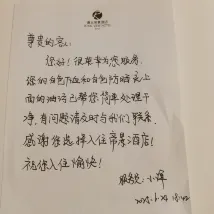 尊贵的客人:
您好!很荣幸为您服务,
您的白色T恤和白色防晒衣上
面的油渍已帮您简单处理干
净,有问题请及时与我们联系,
感谢您选择入住帝景酒店!
祝您入住愉快!
服务员:小辉